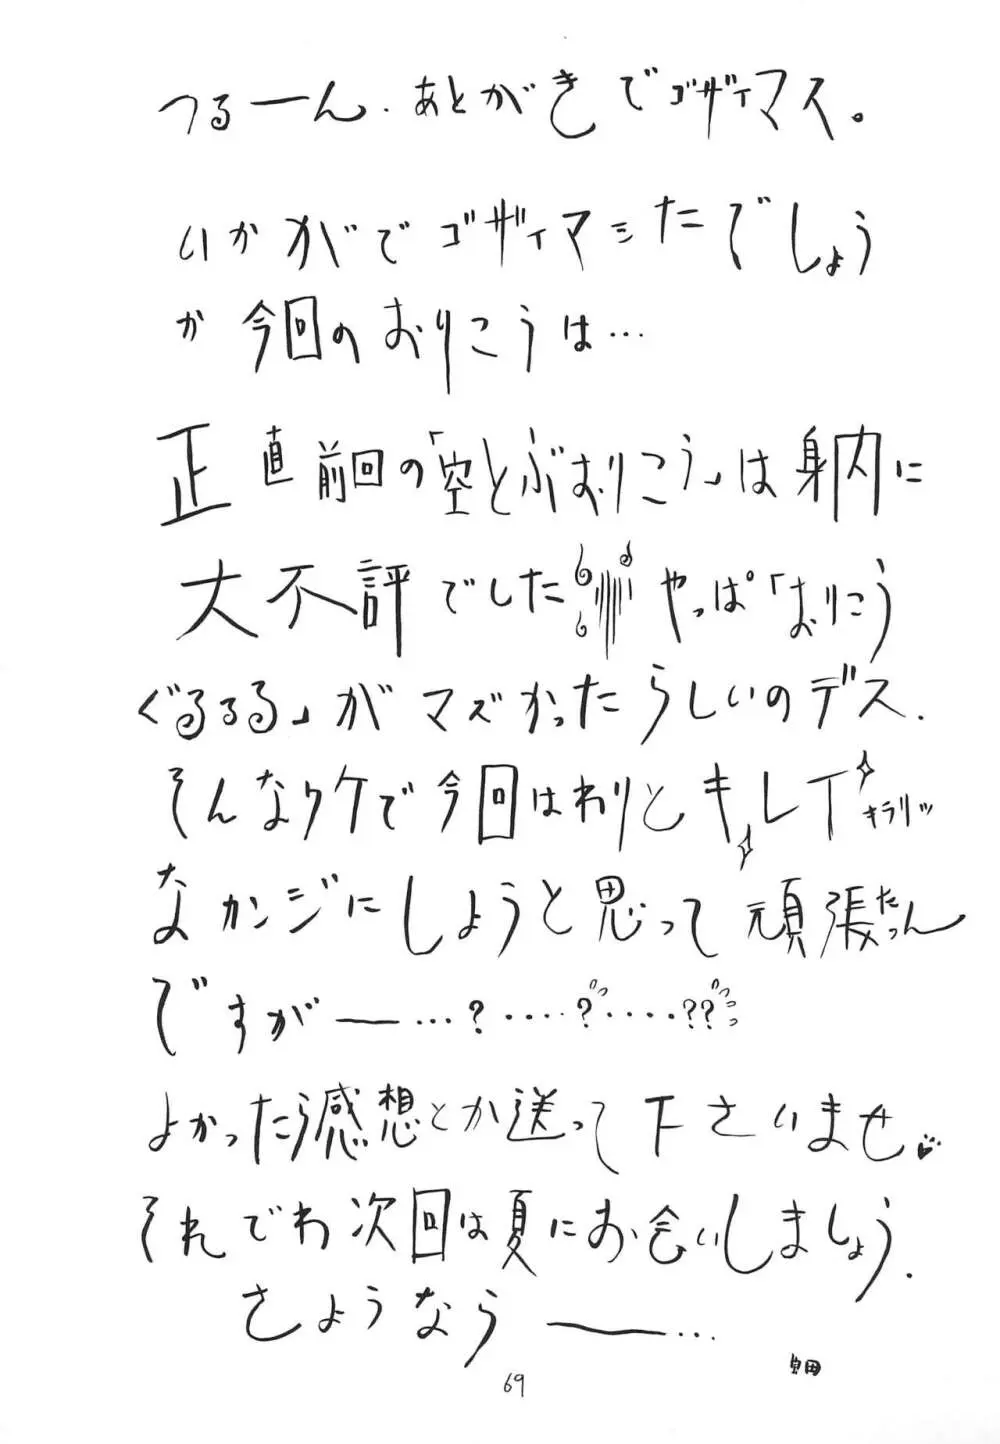 つるーん.あとがきでゴザイマス。
いかがでゴザイマシたでしょう
か今回のおりこうは…
正直前回の「空とぶおりこう」は身内に
大不評でした やっぱ「おりこう
ぐるるる」がマズかったらしいのデス.
そんなワケで今回はわりとキレイ キラリッ
なカンジにしようと思って頑張たつん
ですがーー…?‥‥?‥‥??
よかったら感想とか送って下さいませ
それでわ次回は夏にお会いしましょう.
さようならーー…
69